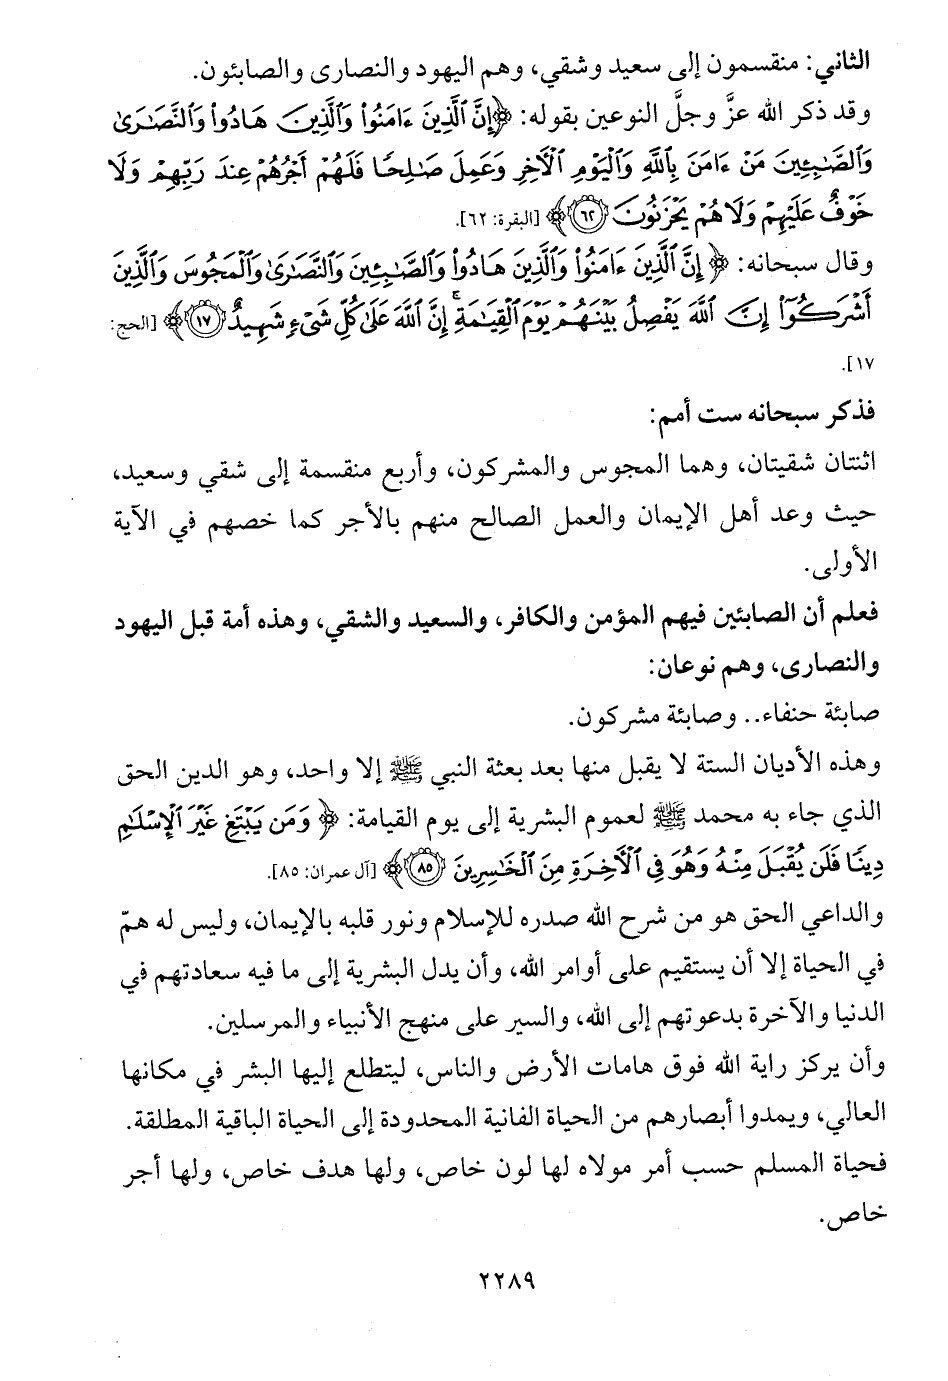 الثاني: منقسمون إلى سعيد وشقي، وهم اليهود والنصارى والصابئون.
وقد ذكر الله عزَّ وجلَّ النوعين بقوله: ﴿إِنَّ ٱلَّذِينَ ءَامَنُوا۟ وَٱلَّذِينَ هَادُوا۟ وَٱلنَّصَـٰرَىٰ
وَٱلصَّـٰبِـِٔينَ مَنْ ءَامَنَ بِٱللَّهِ وَٱلْيَوْمِ ٱلْـَٔاخِرِ وَعَمِلَ صَـٰلِحًا فَلَهُمْ أَجْرُهُمْ عِندَ رَبِّهِمْ وَلَا
خَوْفٌ عَلَيْهِمْ وَلَا هُمْ يَحْزَنُونَ ٦٢﴾ [البقرة: ٦٢].
وقال سبحانه: ﴿إِنَّ ٱلَّذِينَ ءَامَنُوا۟ وَٱلَّذِينَ هَادُوا۟ وَٱلصَّـٰبِـِٔينَ وَٱلنَّصَـٰرَىٰ وَٱلْمَجُوسَ وَٱلَّذِينَ
أَشْرَكُوٓا۟ إِنَّ ٱللَّهَ يَفْصِلُ بَيْنَهُمْ يَوْمَ ٱلْقِيَـٰمَةِ ۚ إِنَّ ٱللَّهَ عَلَىٰ كُلِّ شَىْءٍ شَهِيدٌ ١٧﴾ [الحج:
١٧].
فذكر سبحانه ست أمم:
اثنتان شقيتان، وهما المجوس والمشركون، وأربع منقسمة إلى شقي وسعيد،
حيث وعد أهل الإيمان والعمل الصالح منهم بالأجر كما خصهم في الآية
الأولى.
فعلم أن الصابئين فيهم المؤمن والكافر، والسعيد والشقي، وهذه أمة قبل اليهود
والنصارى، وهم نوعان:
صابئة حنفاء.. وصابئة مشركون.
وهذه الأديان الستة لا يقبل منها بعد بعثة النبي ﷺ إلا واحد، وهو الدين الحق
الذي جاء به محمد ﷺ لعموم البشرية إلى يوم القيامة: ﴿وَمَن يَبْتَغِ غَيْرَ ٱلْإِسْلَـٰمِ
دِينًا فَلَن يُقْبَلَ مِنْهُ وَهُوَ فِى ٱلْـَٔاخِرَةِ مِنَ ٱلْخَـٰسِرِينَ ٨٥﴾ [آل عمران: ٨٥].
والداعي الحق هو من شرح الله صدره للإسلام ونور قلبه بالإيمان، وليس له همّ
في الحياة إلا أن يستقيم على أوامر الله، وأن يدل البشرية إلى ما فيه سعادتهم في
الدنيا والآخرة بدعوتهم إلى الله، والسير على منهج الأنبياء والمرسلين.
وأن يركز راية الله فوق هامات الأرض والناس، ليتطلع إليها البشر في مكانها
العالي، ويمدوا أبصارهم من الحياة الفانية المحدودة إلى الحياة الباقية المطلقة.
فحياة المسلم حسب أمر مولاه لها لون خاص، ولها هدف خاص، ولها أجر
خاص.
٢٢٨٩